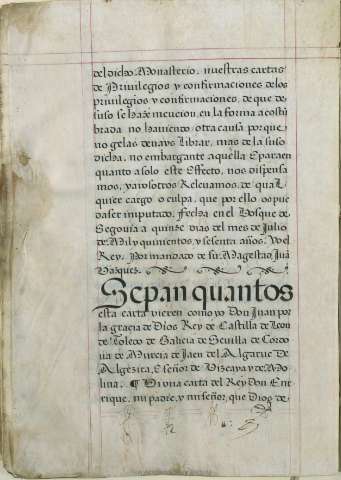 del dicho Monasterio, nuestras cartas
de Privilegios y confirmaciones de los
privilegios y confirmaciones, de que de
suso se haze mencion, en la forma acostũ
brada no haviendo otra causa porque
no gelas devays librar, mas de la suso
dicha, no embargante aquella Epara en
quanto a solo este Effecto, nos dispensa
mos, y a vosotros Relevamos, de qual
quier cargo o culpa, que por ello os pue
da ser imputado, fecha en el Bosque de
Segovia a quinze dias del mes de Julio
de Mil y quinientos, y sesenta años. Yo el
Rey, Por mandado de su Magestad, Juã
Vazquez.
Sepan quantos
esta carta vieren como yo Don Juan por
la gracia de Dios Rey de Castilla de Leon
de Toledo de Galicia de Sevilla de Cordo
va de Murcia de Jaen del Algarve De
Algezira, E señor de Vizcaya y de Mo
lina. Vi una carta del Rey Don En
rrique, mi padre, y mi señor, que Dios de